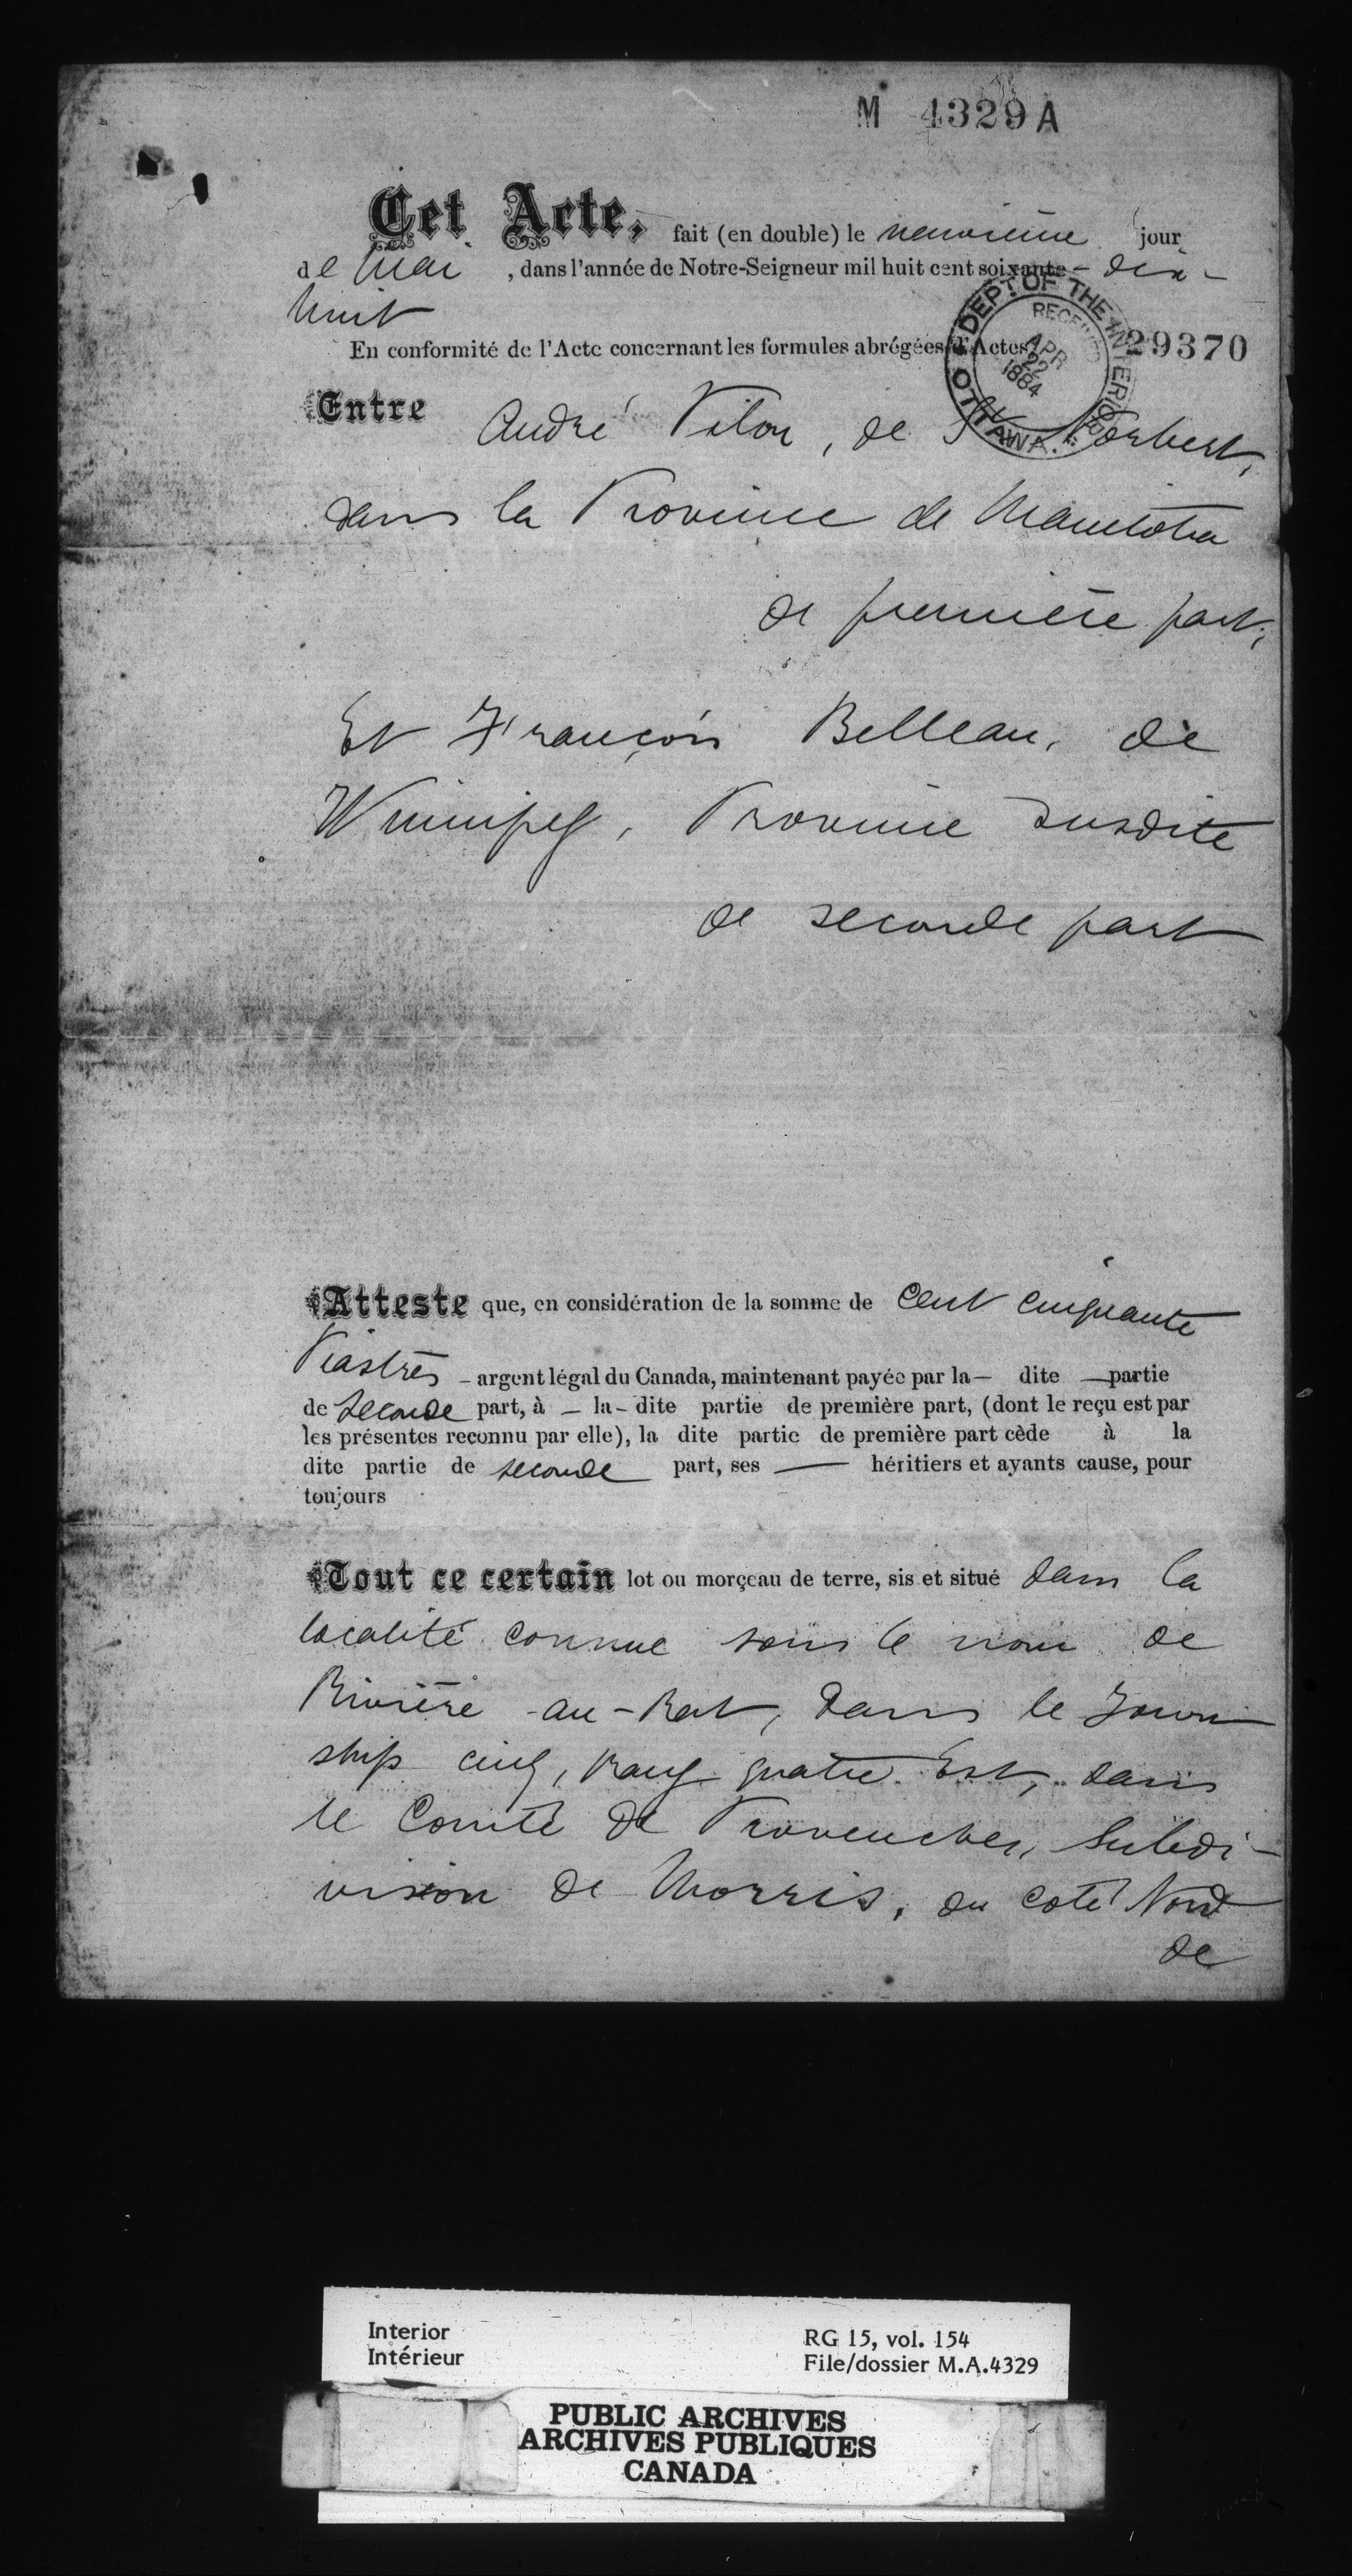 M 4329 A
Cet Acte, fait (en double) le neuvième jour
de Mai , dans l'année de Notre-Seigneur mil huit cent soixante - dix -
huit
En conformité de l'Acte concernant les formules abrégées d'Actes
29370
DEPT. OF THE INTERIOR
RECEIVED
APR
22
1884
OTTAWA.
Entre André , de St Norbert,
dans la Province de Manitoba
de première part,
Et François Belleau, de
Winnipeg, Province susdite
de seconde part
Atteste que, en considération de la somme de Cent cinquante
Piastres - argent légal du Canada, maintenant payée par la — dite — partie
de seconde part, à — la - dite partie de première part, (dont le reçu est par
les présentes reconnu par elle), la dite partie de première part cède à la
dite partie de seconde part, ses — héritiers et ayants cause, pour
toujours
Tout ce certain lot ou morçeau de terre, sis et situé dans la
localité connue sous le nom de
Rivière-au-Rat, dans le Town
ship cinq, rang quatre Est, dans
le Comté de Provencher, Subdi-
vision de Morris, du coté Nord
de
Interior
Intérieur
RG 15, vol. 154
File/dossier M.A.4329
PUBLIC ARCHIVES
ARCHIVES PUBLIQUES
CANADA